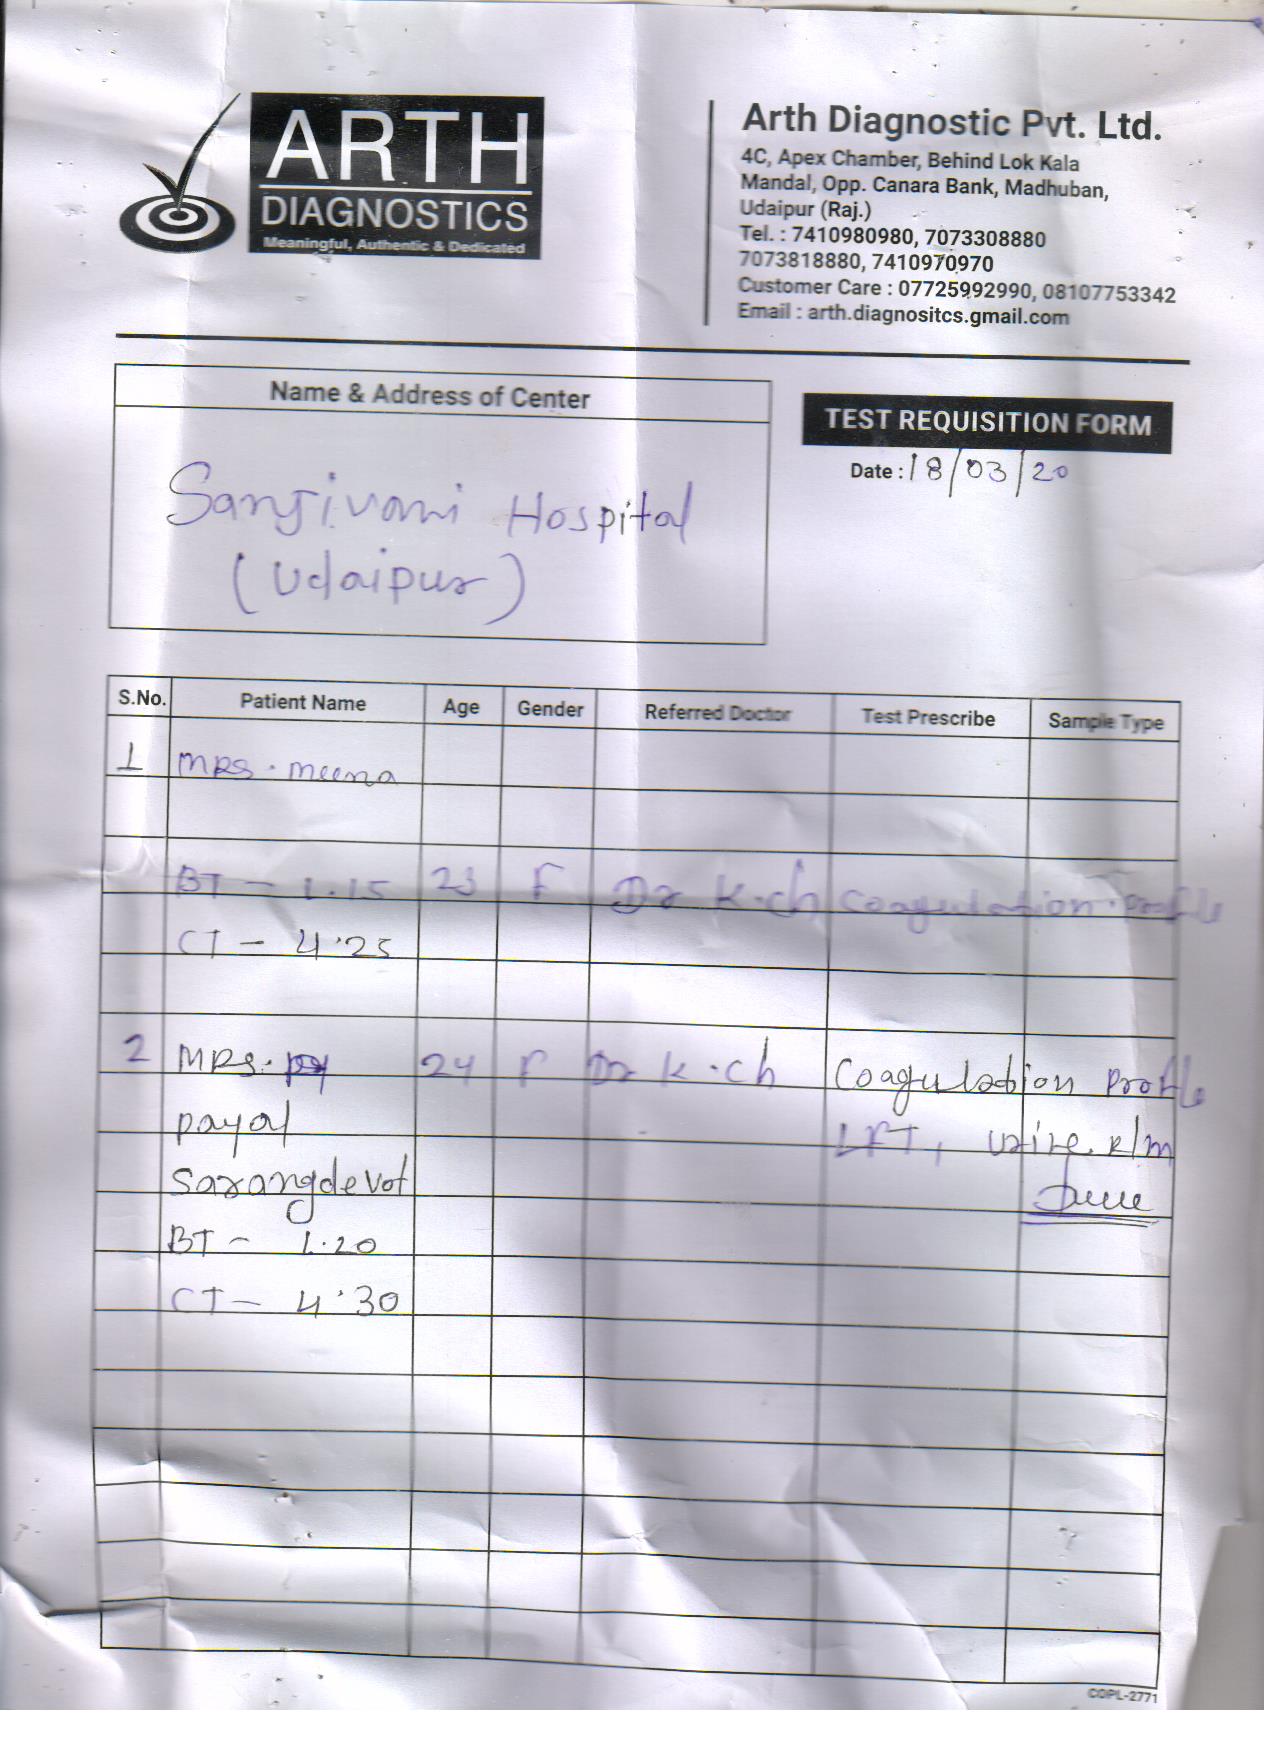 ARTH
DIAGNOSTICS
Meaningful, Authentic & Dedicated
Arth Diagnostic Pvt. Ltd.
4C, Apex Chamber, Behind Lok Kala
Mandal, Opp. Canara Bank, Madhuban,
Udaipur (Raj.)
Tel. : 7410980980, 7073308880
7073818880, 7410970970
Customer Care : 07725992990, 08107753342
Email : arth.diagnositcs.gmail.com
Name & Address of Center
Sanjivani Hospital
(Udaipur)
TEST REQUISITION FORM
Date : 18/03/20
S.No. Patient Name Age Gender Referred Doctor Test Prescribe Sample Type
1 MRS. meena
BT - 1.15 23 F Dr K.ch Coagulation. profile
CT - 4.25
2 MRS. 24 F Dr K.ch Coagulation Profile
payal LFT, urine. R/m
Sarangdevot
BT - 1.20
CT - 4.30
COPL-2771